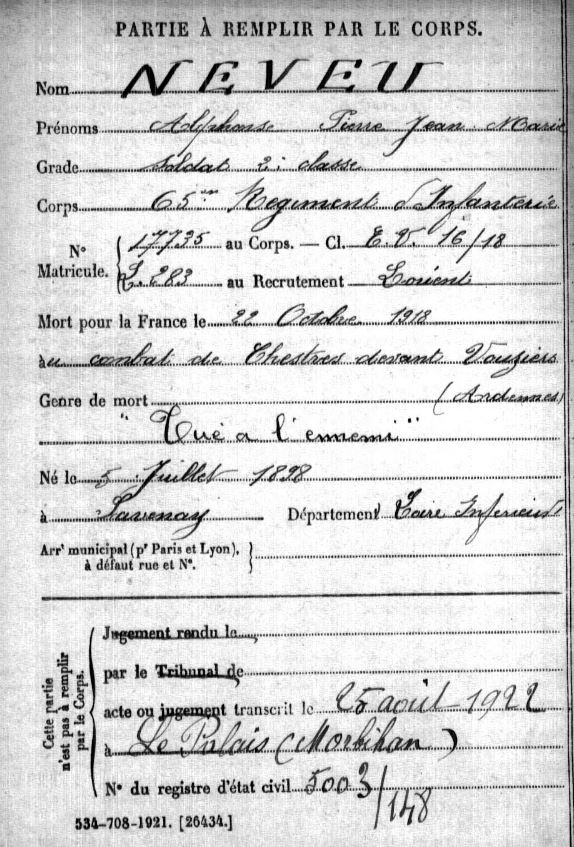 PARTIE À REMPLIR PAR LE CORPS.
Nom NEVEU
Prénoms Alphonse Pierre Jean Marie
Grade Soldat 2e classe
Corps 65me Regiment d'Infanterie
N° Matricule. { 17735 au Corps. — Cl. E.V. 16/18
L. 283 au Recrutement Lorient
Mort pour la France le 22 Octobre 1918
au combat de Chestres devant Vouziers
Genre de mort (Ardennes)
"Tué a l'ennemi"
Né le 5 Juillet 1898
à Savenay Département Loire Inferieure
Arrt municipal (pr Paris et Lyon), }
à défaut rue et N°.
Cette partie n'est pas à remplir par le Corps.
Jugement rendu le
par le Tribunal de
acte ou jugement transcrit le 25 août 1922
à Le Palais (Morbihan)
N° du registre d'état civil 5003/148
534-708-1921. [26434.]